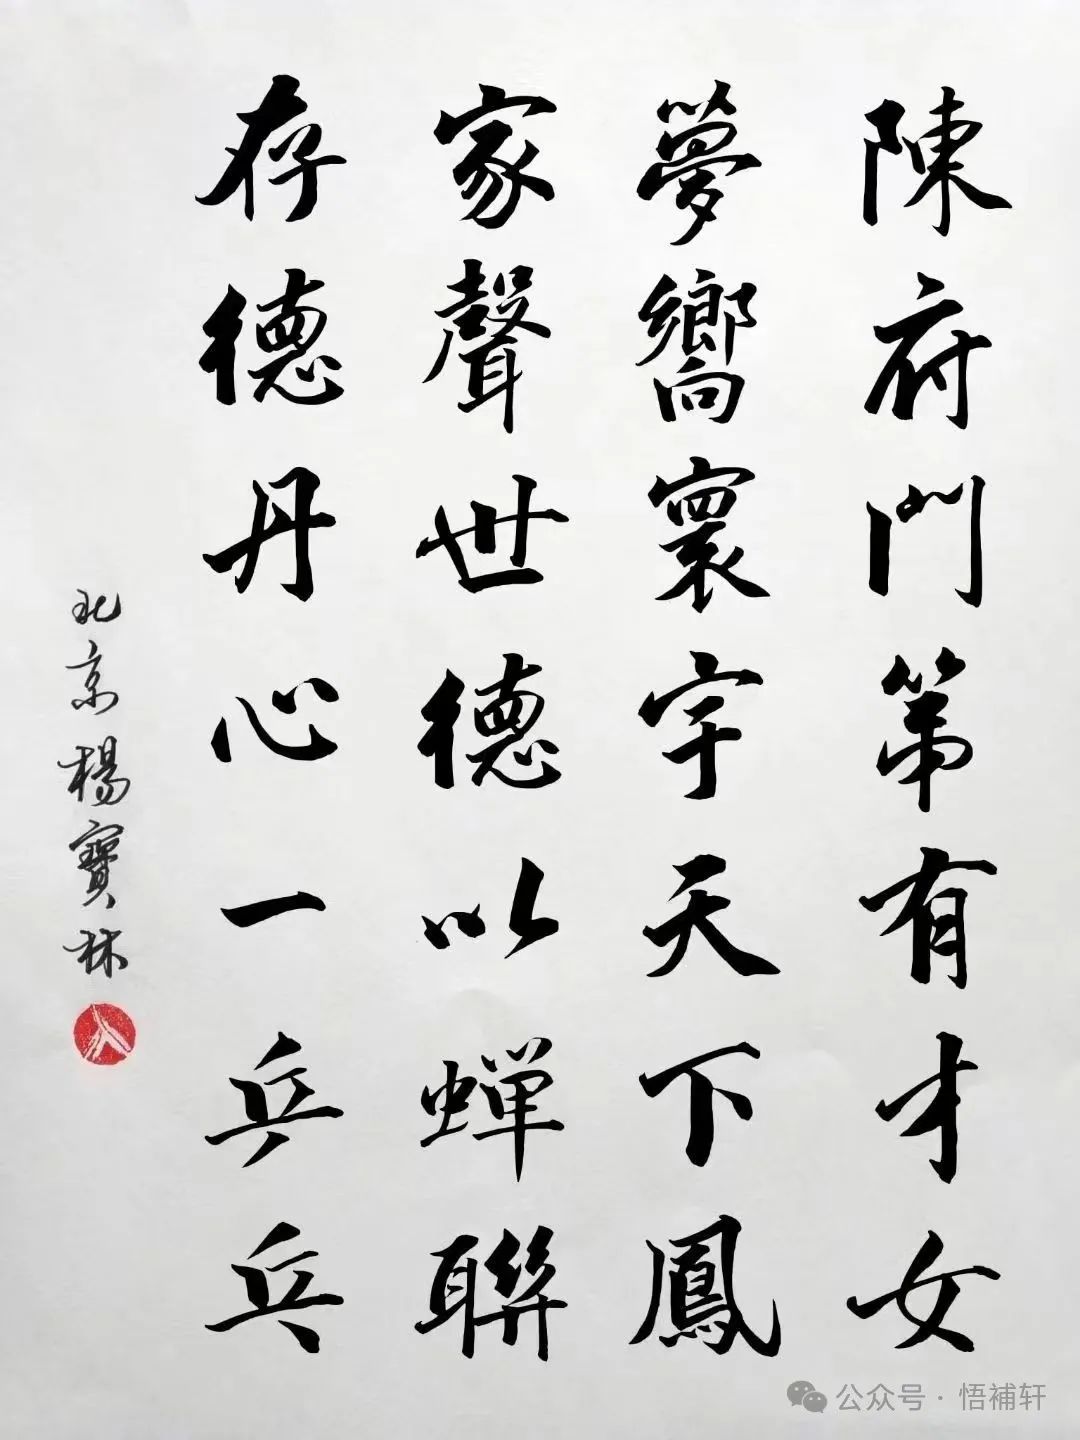 陳府門第有才女
夢嚮寰宇天下鳳
家聲世德以蝉聯
存德丹心一乒乓
北京楊寶林
公众号 · 悟補轩